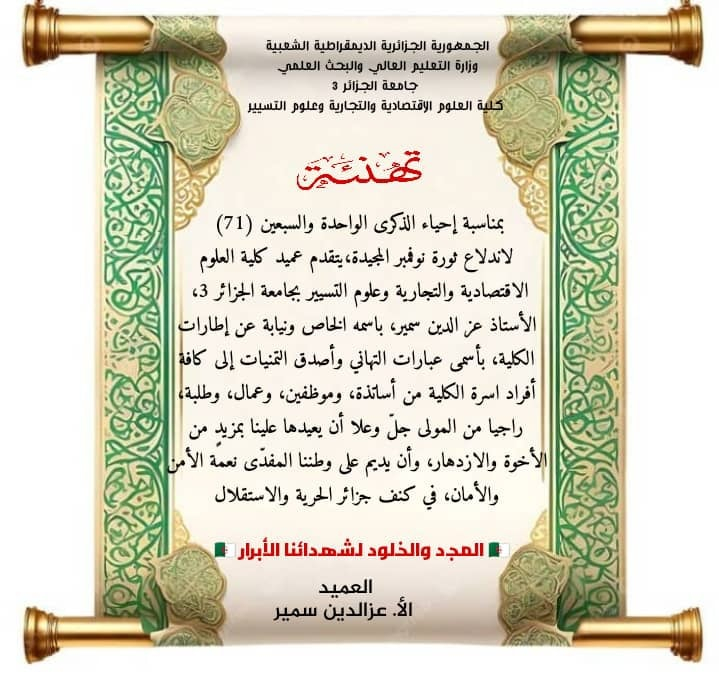 الجمهورية الجزائرية الديمقراطية الشعبية
وزارة التعليم العالي والبحث العلمي
جامعة الجزائر 3
كلية العلوم الإقتصادية والتجارية وعلوم التسيير
تهنئة
بمناسبة إحياء الذكرى الواحدة والسبعين (71)
لاندلاع ثورة نوفمبر المجيدة،يتقدم عميد كلية العلوم
الاقتصادية والتجارية وعلوم التسيير بجامعة الجزائر 3،
الأستاذ عز الدين سمير، باسمه الخاص ونيابة عن إطارات
الكلية، بأسمى عبارات التهاني وأصدق التمنيات إلى كافة
أفراد اسرة الكلية من أساتذة، وموظفين، وعمال، وطلبة،
راجيا من المولى جلّ وعلا أن يعيدها علينا بمزيدٍ من
الأخوة والازدهار، وأن يديم على وطننا المفدّى نعمة الأمن
والأمان، في كنف جزائر الحرية والاستقلال
🇩🇿 المجد والخلود لشهدائنا الأبرار 🇩🇿
العميد
الأ. عزالدين سمير